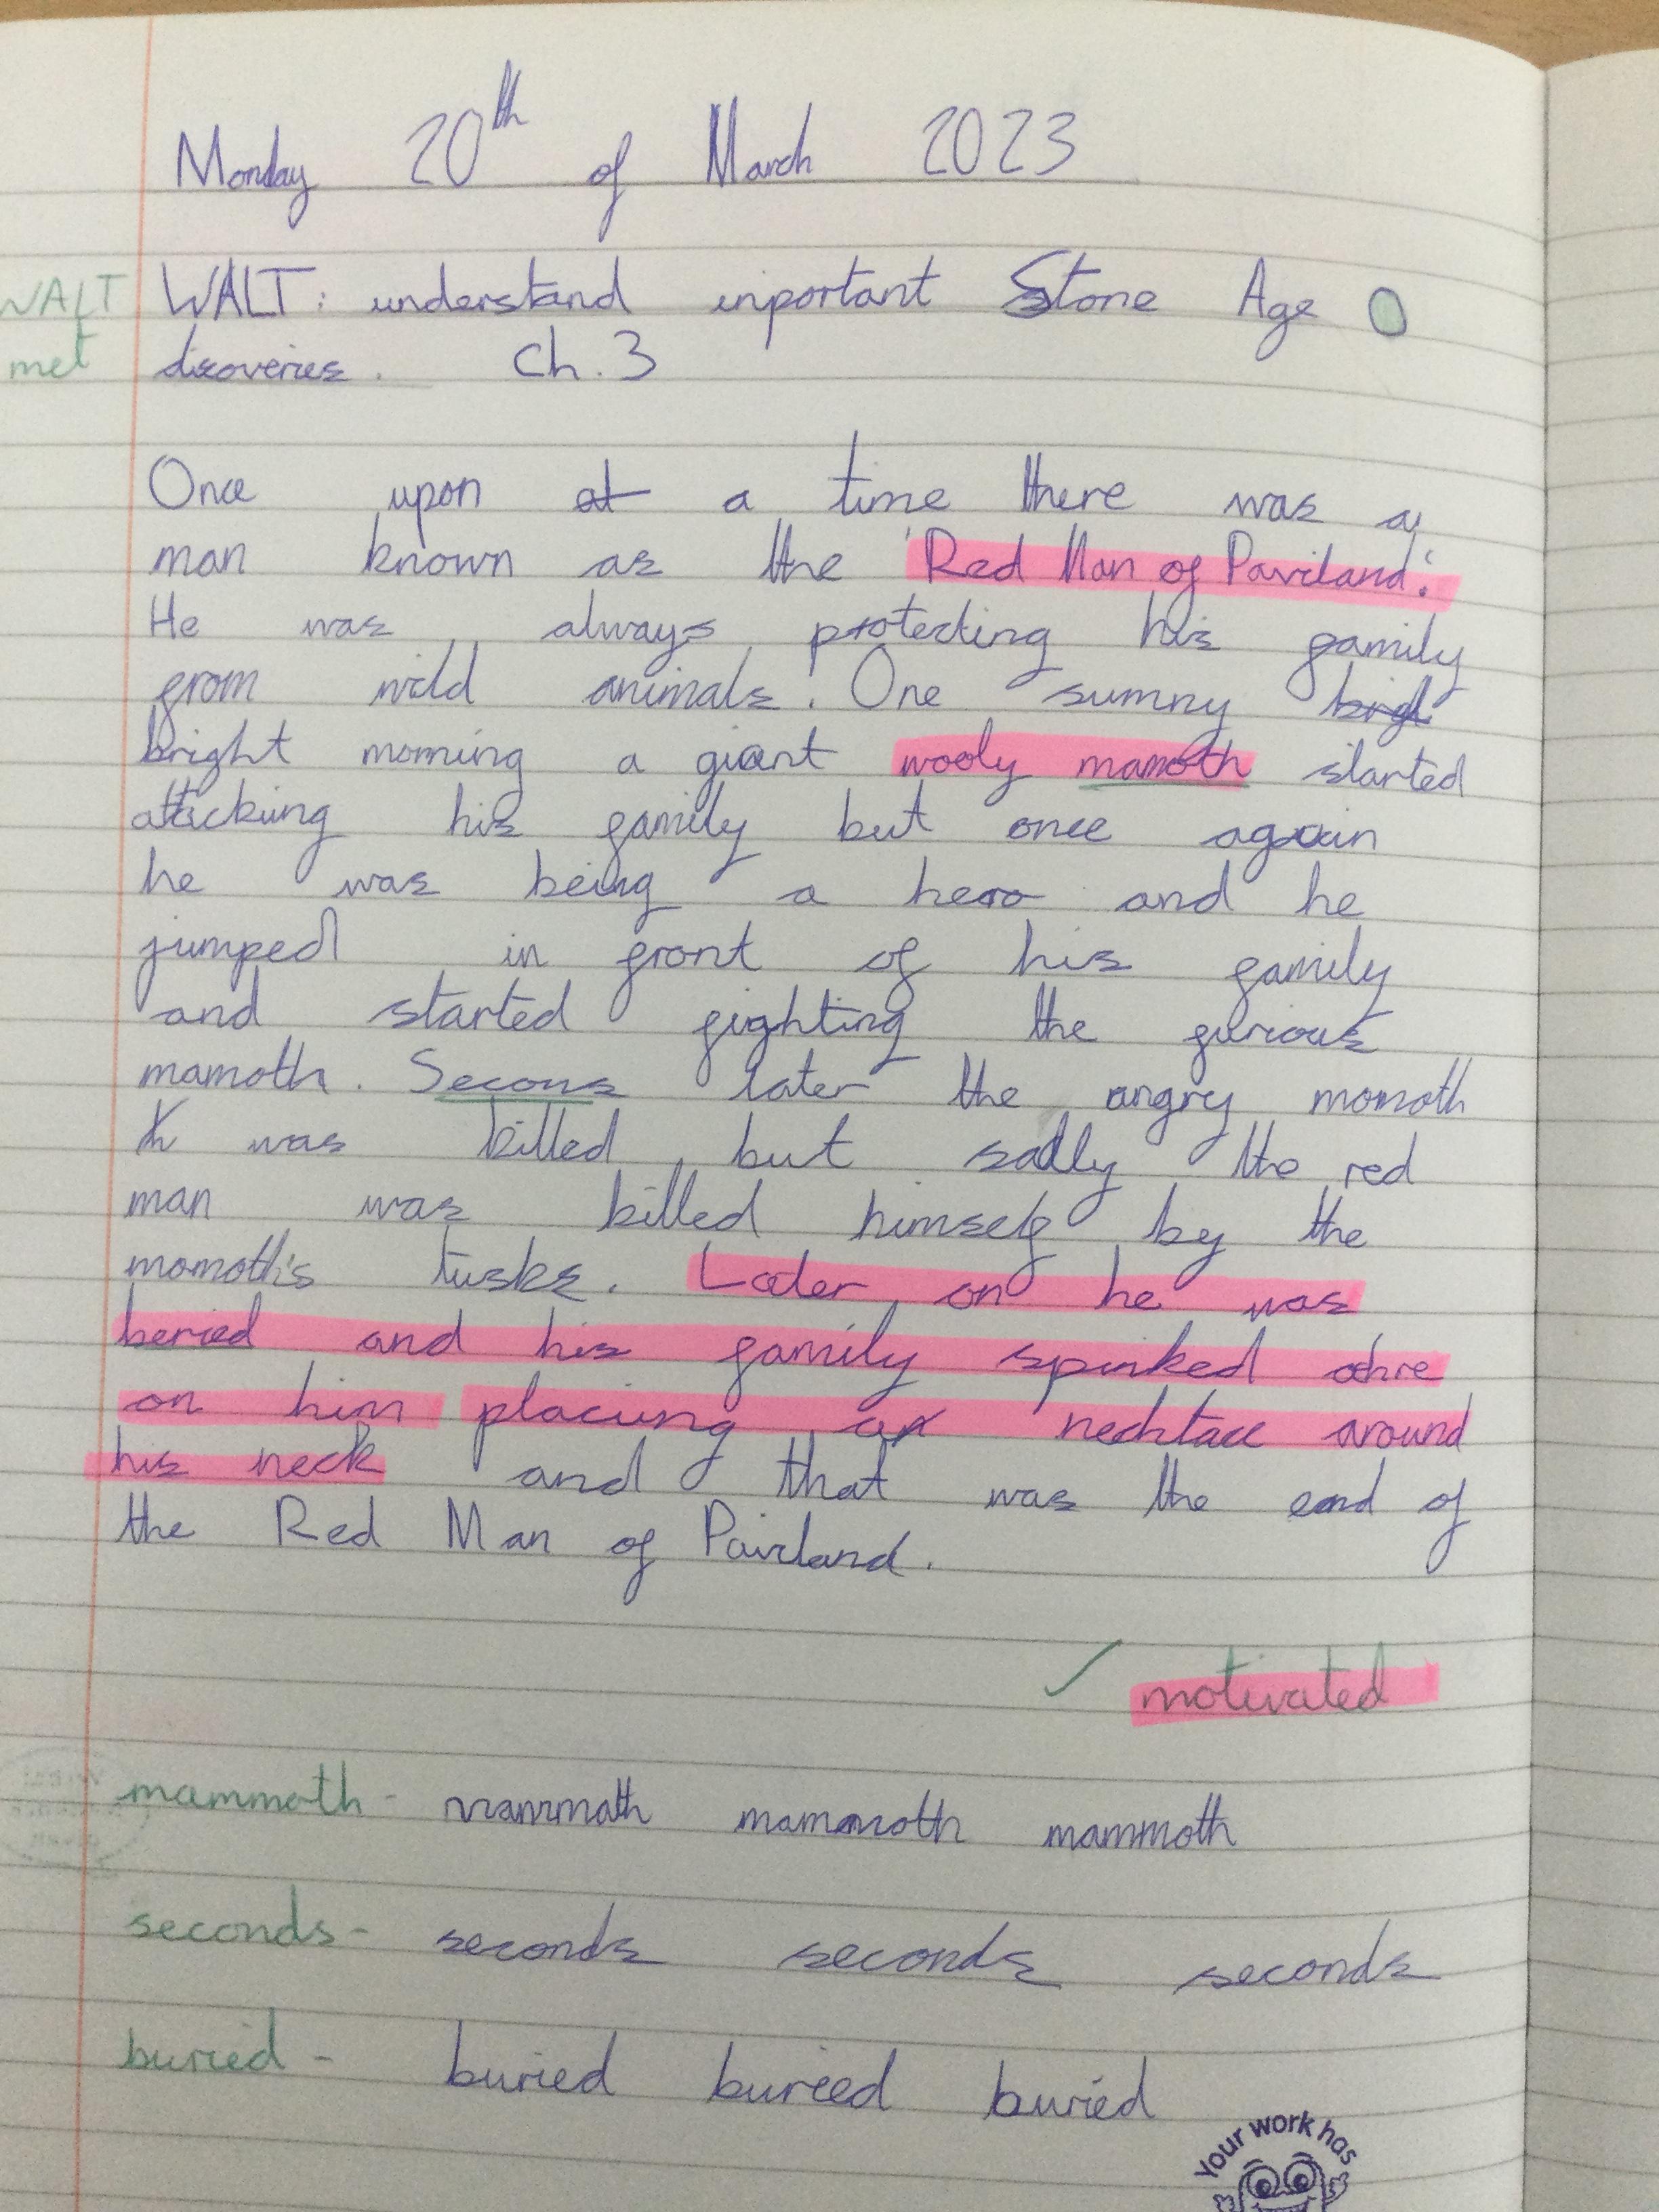 Monday 20th of March 2023
WALT WALT: understand inportant Stone Age
met discoveries. Ch.3
Once upon at a time there was a
man known as the 'Red Man of Paviland'.
He was always protecting his family
from wild animals. One sunny brigh
bright morning a giant wooly mamoth started
attacking his family but once again
he was being a hero and he
jumped in front of his family
and started fighting the furious
mamoth. Secons later the angry momoth
was killed, but sadly the red
man was killed himself by the
momoth's tusks. Later on he was
beried and his family sprinked ochre
on him placing a necklace around
his neck and that was the end of
the Red Man of Paviland.
✓ motivated
mammoth - mammoth mammoth mammoth
seconds - seconds seconds seconds
buried - buried buried buried
Your work has